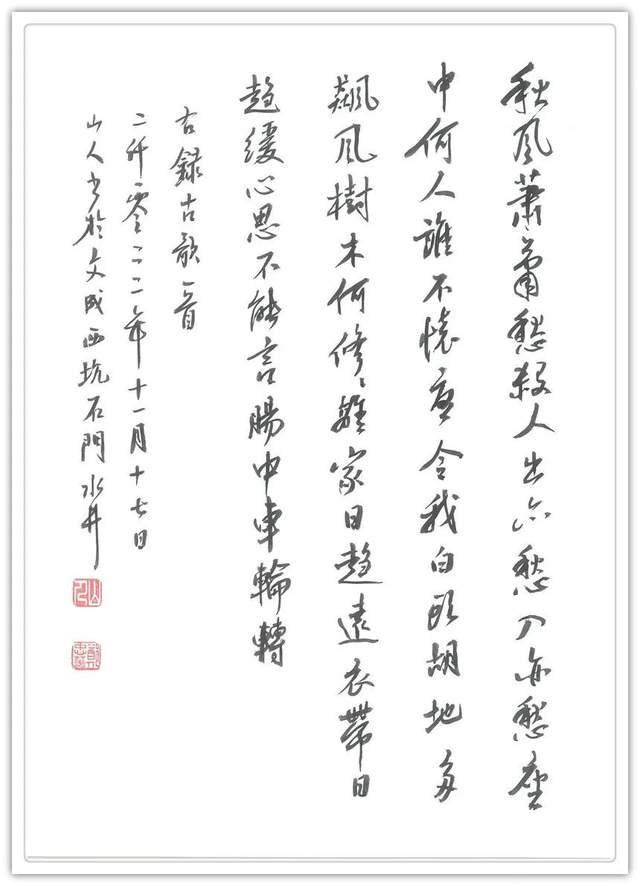 秋風蕭蕭愁殺人出亦愁入亦愁座
中何人誰不懷憂令我白頭胡地多
飆風樹木何修〻離家日趨遠衣帶日
趨緩心思不能言腸中車輪轉
右錄古歌一首
二仟零二二年十一月十七日
山人书於文成西坑石門水井
山人